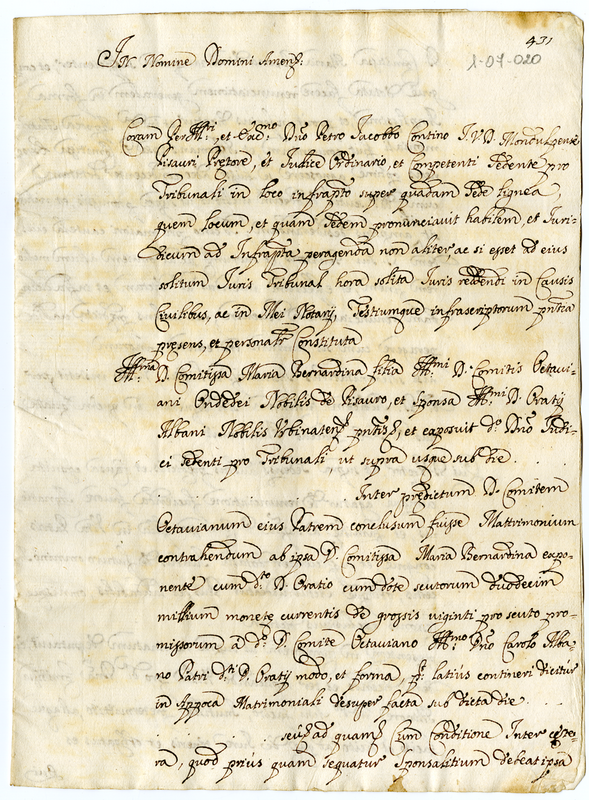 431
1-07-020
In Nomine Domini Amen:
Coram Per Ill.ri, et Ecc.mo Dno Petro Jacobbo Contino I.V.D. Mondulgense
Pisauri Pretore, et Judice Ordinario, et Competenti sedente pro
Tribunali in loco infrapto super quadam sede lignea,
quem locum, et quam sedem pronunciavit habilem, et Juri-
dicum ad infrapta peragenda non aliter ac si esset ad eius
solitum Juris Tribunal hora solita Juris reddendi in Causis
Civilibus, ac in Mei Notarij, Testiumque infrascriptorum pntia
presens, et personalr Constituta
Ill.ma D. Comitissa Maria Bernardina filia Ill.mi D. Comitis Octavi-
ani Ondedei Nobilis de Pisauro, et sponsa Ill.mi D. Oratij
Albani Nobilis Urbinaten pntis, et exposuit do. Dno Judi-
ci sedenti pro Tribunali ut supra usque sub die . . . .
Inter predictum D. Comitem
Octavianum eius Patrem conclusum fuisse Mattrimonium
contrahendum ab ipsa D. Comitissa Maria Bernardina expo-
nente cum d.to D. Oratio cum dote scutorum duodecim
millium monete currentis de grossis viginti pro scuto pro-
missorum a do. D. Comite Octaviano Ill.mo Dno Carolo Alba-
no Patri d.ti D. Oratij modo, et forma, pt latius contineri dicitur
in Appoca Matrimoniali desuper facta sub dicta die . . .
. . . seu ad quam Cum Conditione Inter cete-
ra, quod prius quam sequatur Sponsalitium debeat ipsa